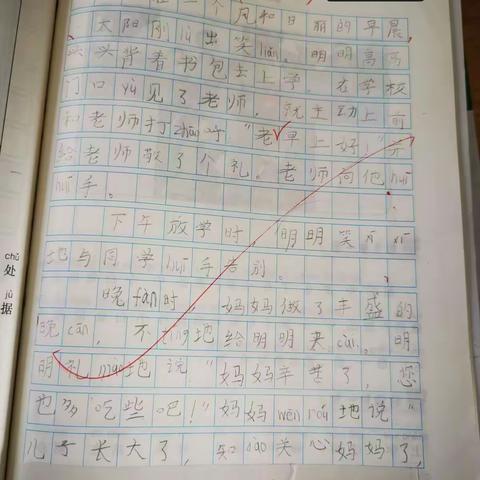 在一个风和日丽的早晨,
太阳刚lù出笑liǎn,明明高高
兴兴背着书包去上学。在学校
门口yù见了老师,就主动上前
和老师打zhāo呼:"老早上好!"并
给老师敬了个礼。老师向他huī
huī手。
下午放学时,明明笑xī xī
地与同学huī手告别。
晚fàn时,妈妈做了丰盛的
晚cān,不tíng地给明明夹cài。明
明礼mào地说:"妈妈辛苦了,您
也多吃些吧!"妈妈wēn róu地说"
儿子长大了,知dào关心妈妈了,
chǔ
处
jù
据